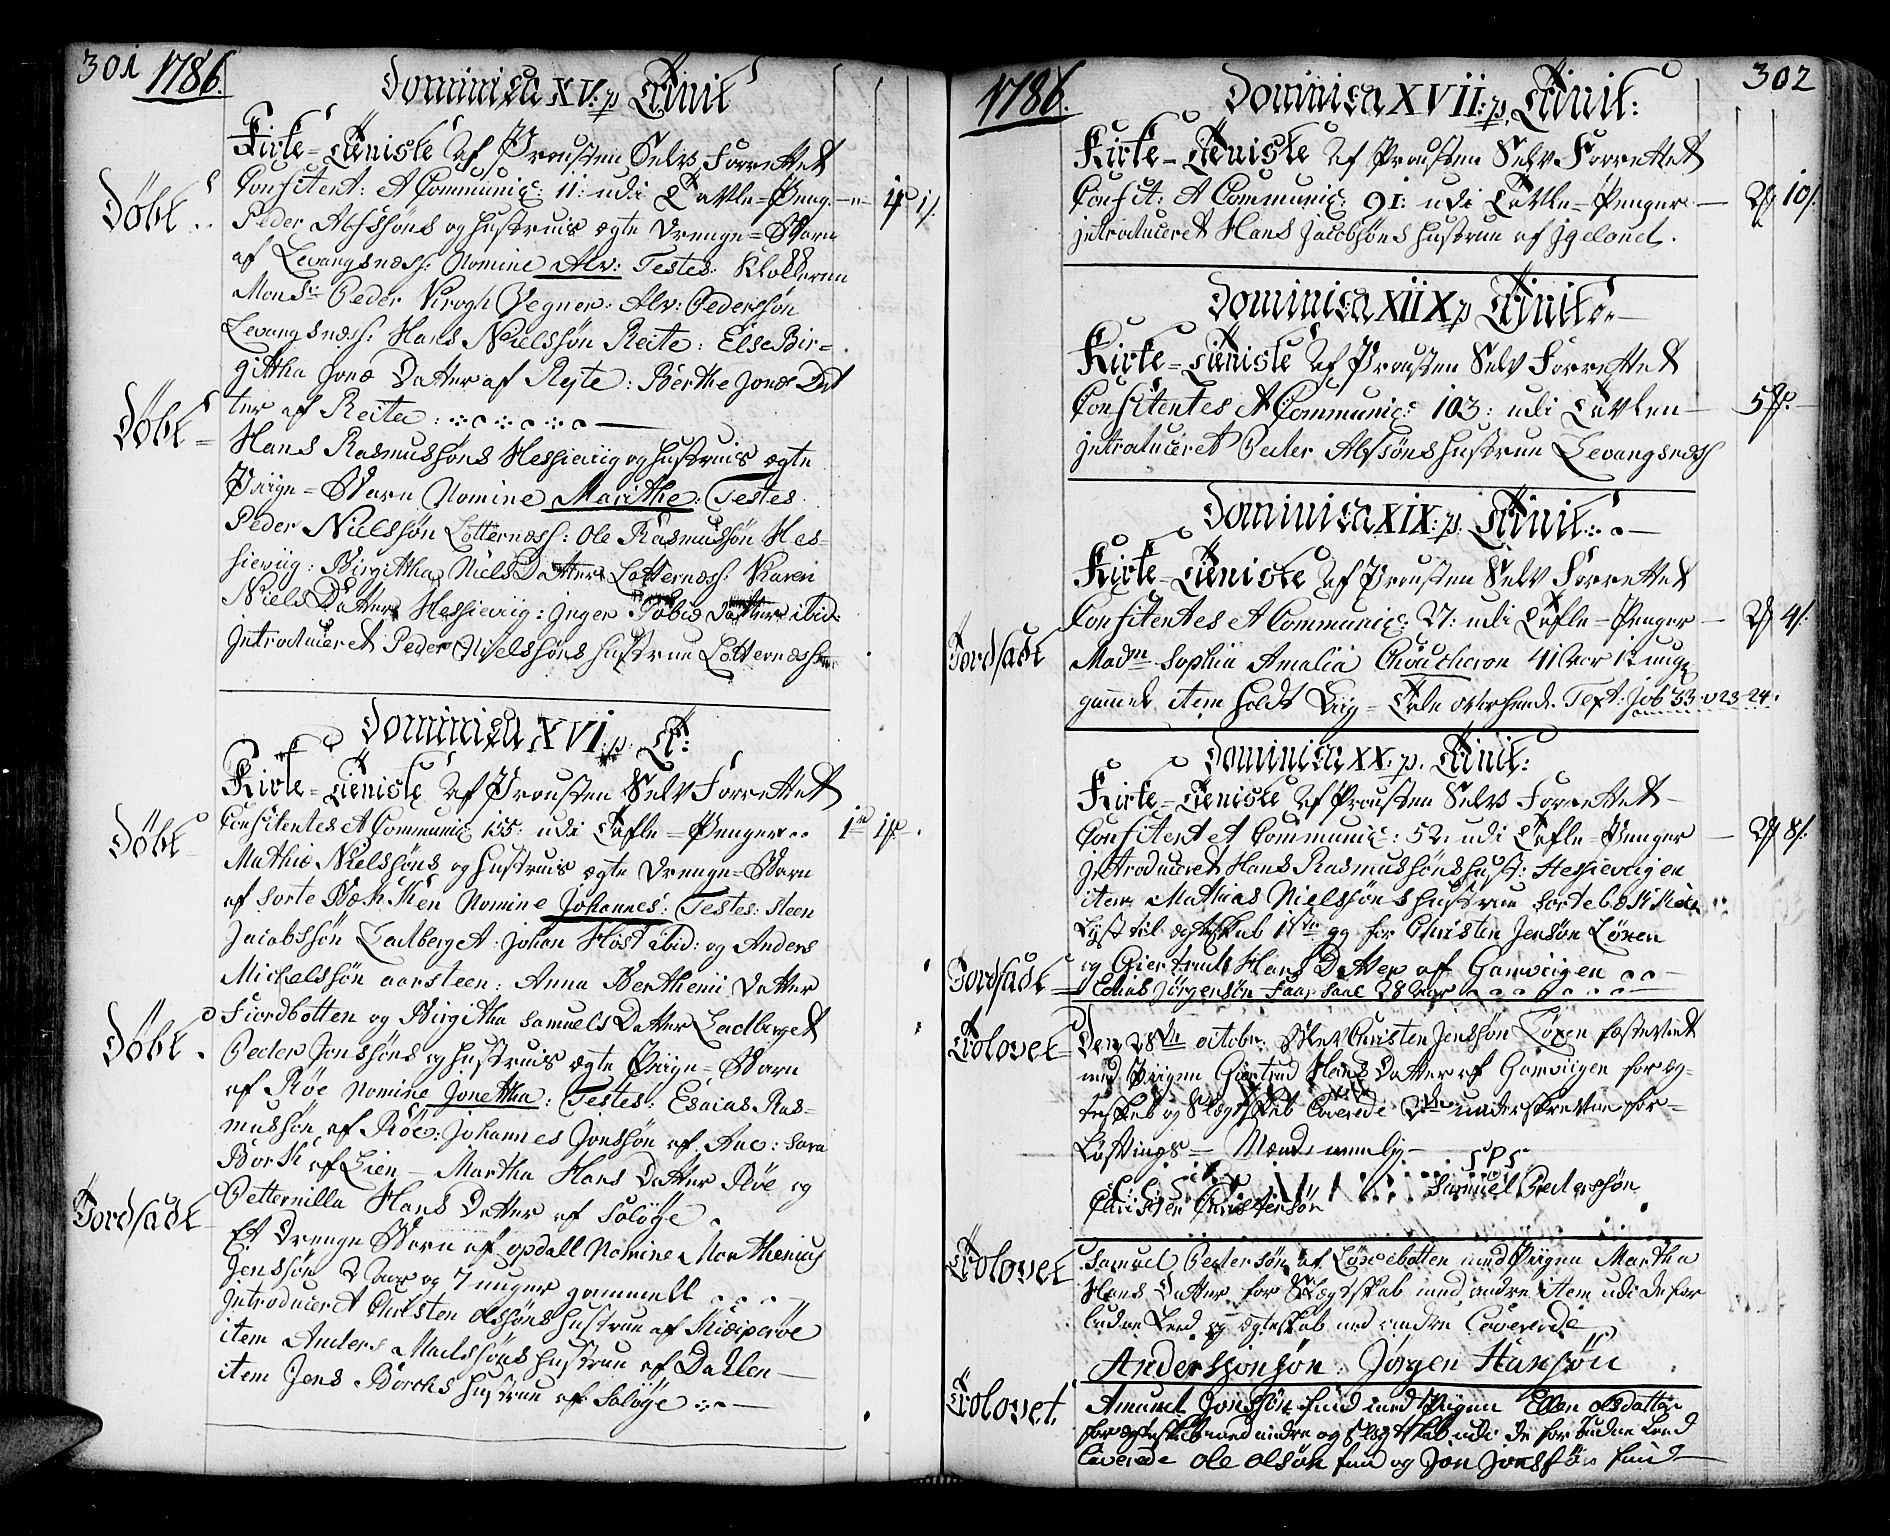 301 1786.
Dominica XV: p Trinit
Kirke=Tieniste af Prousten Selv Forrettet
Confitent: et Communic: 11: udi Tavle=Peng.
Døbt.. Peder Alfssöns og hustrues ægte Drenge=Barn
af Levangsnæss: Nomine Alv: Testes: Klokkeren
Monsr Peder Krogh Wegner: Alv: Pedersøn
Levangsnæss: Hans Nielssön Reite: Else Bir=
githa Jons Datter af Reite: Berthe Jons Dat
ter af Reite:
Døbt= Hans Rasmussöns Hessieviig og hustrues ægte
Piige=Barn Nomine Marithe: Testes.
Peder Nielssön Lotternæss: Ole Rasmussön Hes=
sieviig: Birgitha Niels Datter Lotternæss: Karen
Niels Datter Hessieviig: Inger Tobias Datter ibid:
Introduceret Peder Nielssöns hustrue Lotternæss
Dominica XVI: p. T:
Kirke=Tieniste af Prousten Selv Forrettet
Confitentes et Communic 155: udi Tafle=Penger..
Døbt Mathis Nielssöns og hustrues ægte Drenge=Barn
af Sorte Bækken Nomine Johannes: Testes: Steen
Jacobssön Ladberget: Johan Höst ibid: og Anders
Michelssön aarsteen: Anna Berthenii Datter
Fiordbotten og Birgitha Samuels Datter Ladberget
Døbt. Peder Jonssöns og hustrues ægte Piige=Barn
af Röe Nomine Jonetha: Testes: Esaias Ras=
mussön af Röe: Johannes Jonssön af Ane: Sara
Bork af Lien – Martha Hans Datter Röe og
Petternilla Hans Datter af Solöye
Jordsadt Et Drenge Barn af opdall Nomine Morthenius
Jenssön 2 aar og 7 uger gammell
Introduceret Christen Olssöns hustrue af Skieiperöe
item Anders Madssöns hustrue af Dahlen –
item Jens Borchs hustrue af Solöye
1786. 302
Dominica XVII: p. Trinit:
Kirke=Tieniste af Prousten Selv Forrettet
Confit: et Communic: 91: udi Tavle=Penger. – 10/.
Introduceret Hans Jacobsöns hustrue af Igeland.
Dominica XIIX p Trinit
Kirke=Tieniste af Prousten Selv Forrettet
Confitentes et Communic: 103: udi Tavlen –
Introduceret Peder Alfsöns hustrue Levangsnæss
Dominica XIX: p. Trinit:
Kirke=Tieniste af Prousten Selv Forrettet
Confitentes et Communic: 27: udi Tafle=Penger – 4/.
Jordsadt Madm Sophia Amalia 41 Aar 12 uug
gammel item holdt Liig=Tale over hende. Text: Job 33 v 23-24.
Dominica XX. p. Trinit:
Kirke=Tieniste af Prousten Selv Forrettet –
Confitent et Communic: 52. udi Tafle=Penger – 8/.
Introduceret Hans Rasmussöns hust: Hessieviigen
item Mathias Nielssöns hustrue Sortebækken
Lyst til ægteskab 1ste gg for Christen Jensøn Löxen
og Giertrud Hans Datter af Gamviigen
Jordsadt Tobias Jørgensön 28 Aar
Trolovet= Den 28de octobr. blev Christen Jenssön Löxen fæstevet
med Piigen Giertrud Hans Datter af Gamviigen for æg=
teskab og Slægtskab Caverede 2de underskrevne for=
Lovtings= Mænd nemlig –
Samuel Pederssön
Christen Christensön
Trolovet Samuel Pedersön af Löxebotten med Piigen Martha
Hans Datter for Slægtskab med andre item udi de for
budne Leed og ægteskab med andre Caverede
Anders Jonsön: Jörgen Hansön
Trolovet. Amund Jonssön fund med Piigen Ellen olsdatter
for ægteskab med andre og slegtskab udi de forbudne Leed
Caverede Ole Olsön fun og Jon Jonssön fund